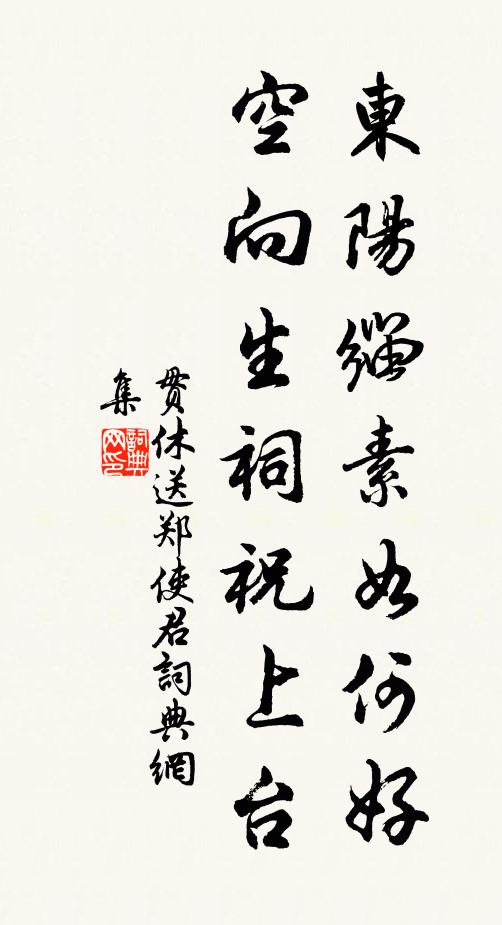 東陽緇素如何好
空向生祠祝上台
貫休送郑使君詞典網
集
詞典
网印